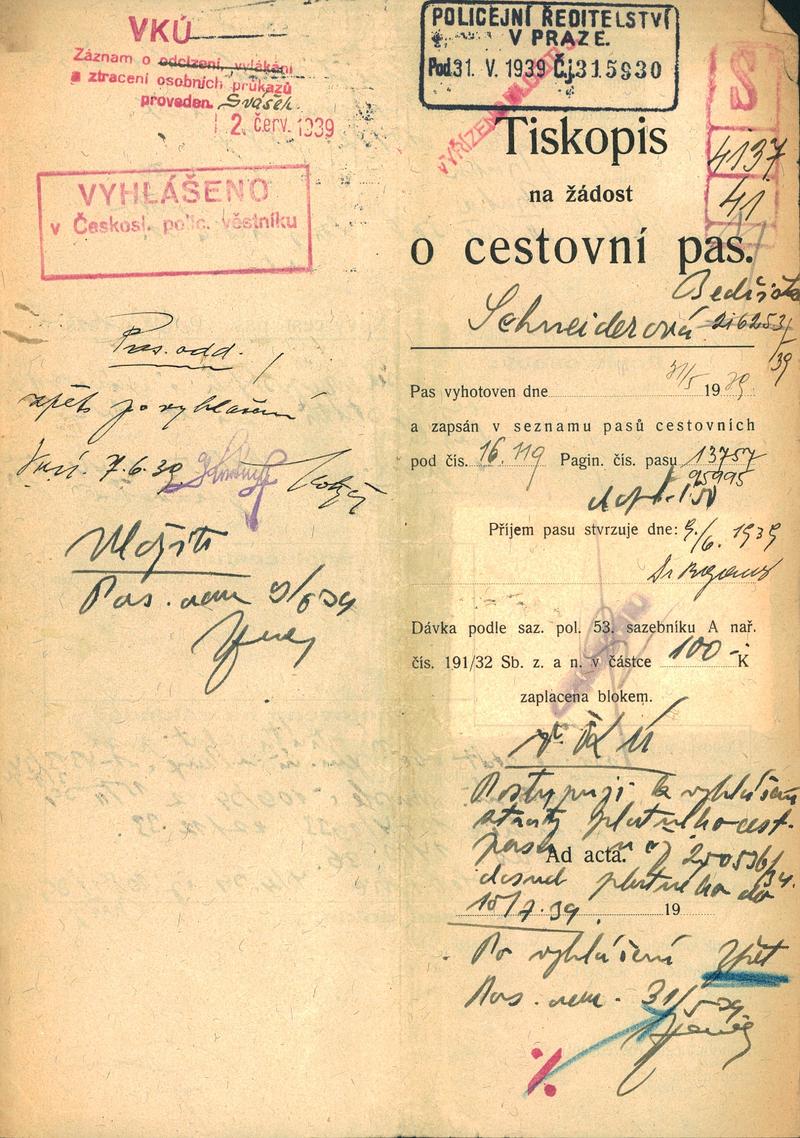 VKÚ
Záznam o odcizení, vylákání
a ztracení osobních průkazů
proveden. Svášek
2. červ. 1939
VYHLÁŠENO
v Českosl. polic. věstníku
Pas. odd.
zpět po vyhlášení
7.6.39
Uložiti
Pas. odd. 9/6 39
POLICEJNÍ ŘEDITELSTVÍ
V PRAZE.
Pod. 31. V. 1939 Č.j. 315930
VYŘÍZENO
S
4137
41
Tiskopis
na žádost
o cestovní pas.
Schneiderová Bedřiška
216253/39
Pas vyhotoven dne 31/5 1939
a zapsán v seznamu pasů cestovních
pod čís. 16.119 Pagin. čís. pasu 13757
95995
Příjem pasu stvrzuje dne: 9/6. 1939
Dávka podle saz. pol. 53. sazebníku A nař.
čís. 191/32 Sb. z. a n. v částce 100.- K
zaplacena blokem.
V.K.Ú
Postupuji k vyhlášení
ztráty platného cest.
pasu čj 250536/34.
Ad acta.
dosud platného do
10/7.39. 19
Po vyhlášení zpět
31/5 39